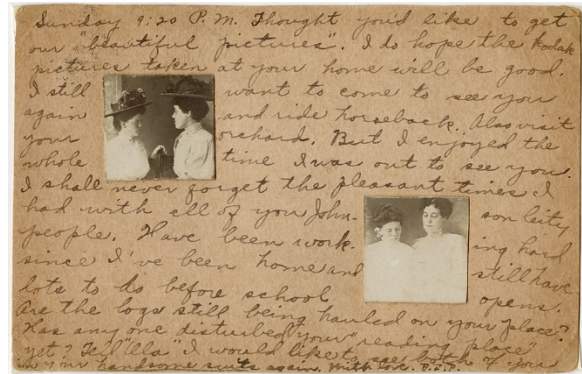 Sunday 9:20 P.M. Thought you'd like to get
our "beautiful pictures". I do hope the kodak
pictures taken at your home will be good.
I still want to come to see you
again and ride horseback. Also visit
your orchard. But I enjoyed the
whole time I was out to see you.
I shall never forget the pleasant times I
had with all of you John- son City
people. Have been work- ing hard
since I've been home and still have
lots to do before school opens.
Are the logs still being hauled on your place?
Has any one disturbed your "reading place"
yet? Tell "Ella" I would like to see both of you
in your handsome suits again. With love.